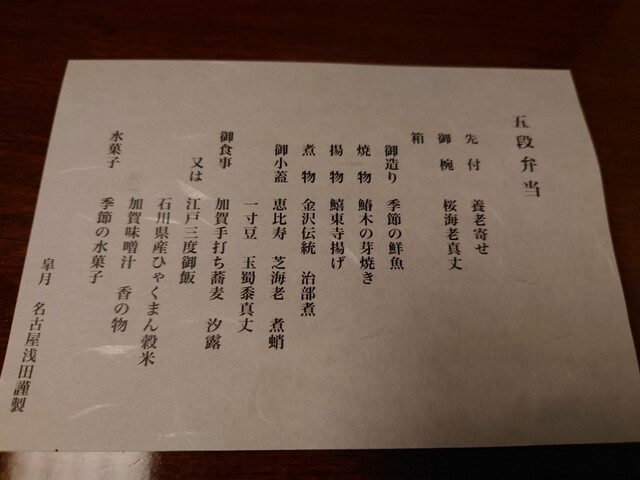 五段弁当
先付 養老寄せ
御椀 桜海老真丈
箱
御造り 季節の鮮魚
焼物 鰆木の芽焼き
揚物 鱚東寺揚げ
煮物 金沢伝統 治部煮
御小蓋 恵比寿 芝海老 煮蛸
一寸豆 玉蜀黍真丈
御食事 加賀手打ち蕎麦 汐露
又は 江戸三度御飯
石川県産ひゃくまん穀米
加賀味噌汁 香の物
水菓子 季節の水菓子
皐月 名古屋浅田謹製